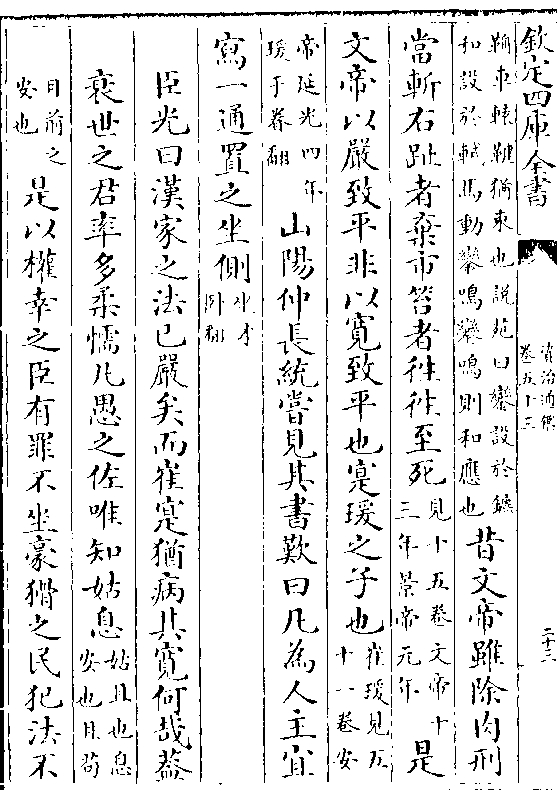 欽定四庫全書
資治通鑑
卷五十三
二十三
鞠車轅鞁猶束也說苑曰鑾設於鑣
和設於軾馬動鑾鳴鑾鳴則和應也
昔文帝雖除肉刑
當斬右趾者棄市笞者往往至死
見十五卷文帝十
三年景帝元年
是
文帝以嚴致平非以寛致平也寔瑗之子也
崔瑗見五
十一卷安
帝延光四年
瑗于眷翻
山陽仲長統嘗見其書歎曰凡為人主宜
寫一通置之坐側
坐才
卧翻
臣光曰漢家之法已嚴矣而崔寔猶病其寛何哉葢
衰世之君率多柔懦凡愚之佐唯知姑息
姑且也息
安也且苟
目前之
安也
是以權幸之臣有罪不坐豪猾之民犯法不